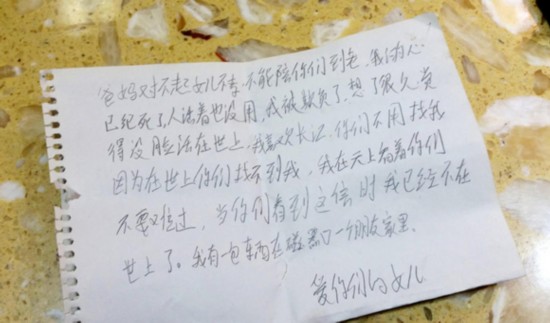 爸妈对不起女儿不孝不能陪你们到老，我的心
已经死了人活着也没用，我被欺负了，想了很久觉
得没脸活在世上，我喜欢长江，你们不用找我
因为在世上你们找不到我，我在天上看着你们
不要难过，当你们看到这信时我已经不在
世上了。我有一包东西在磁器口一个朋友家里.
爱你们的女儿